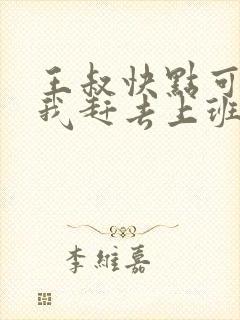 王叔快點可
我赶去上班
李維嘉